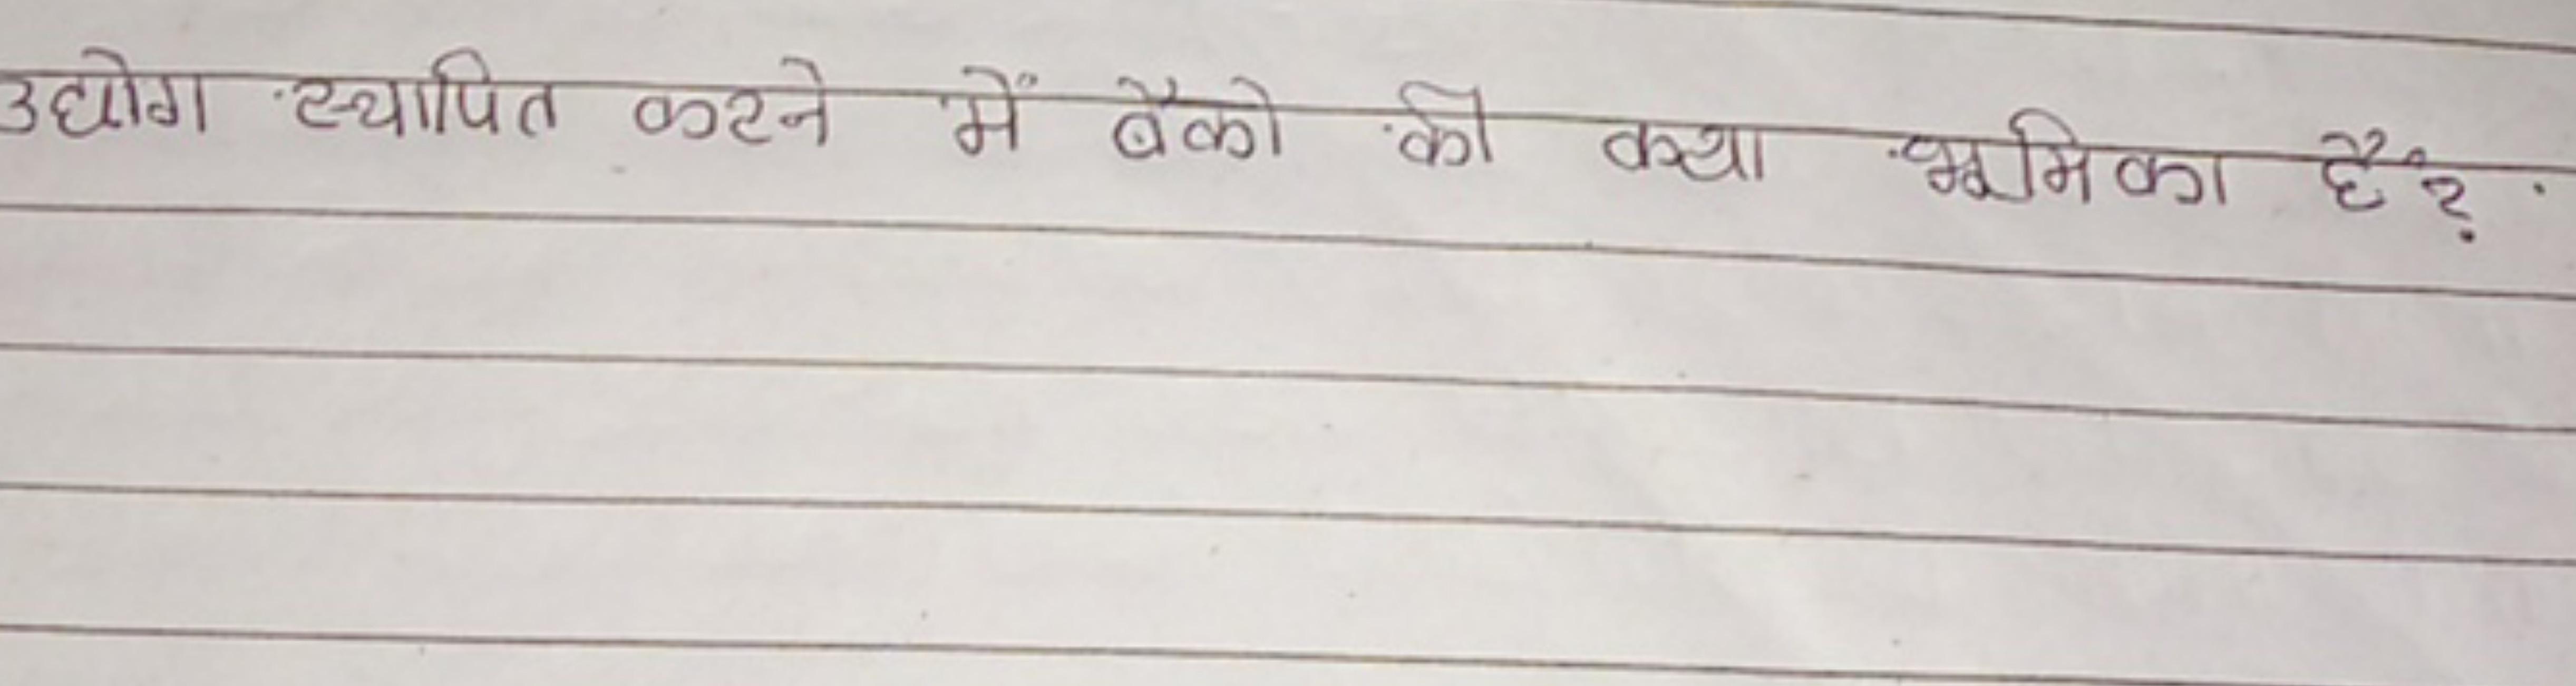 उद्योग स्थापित करने में बैंको की क्या भूमिका है?